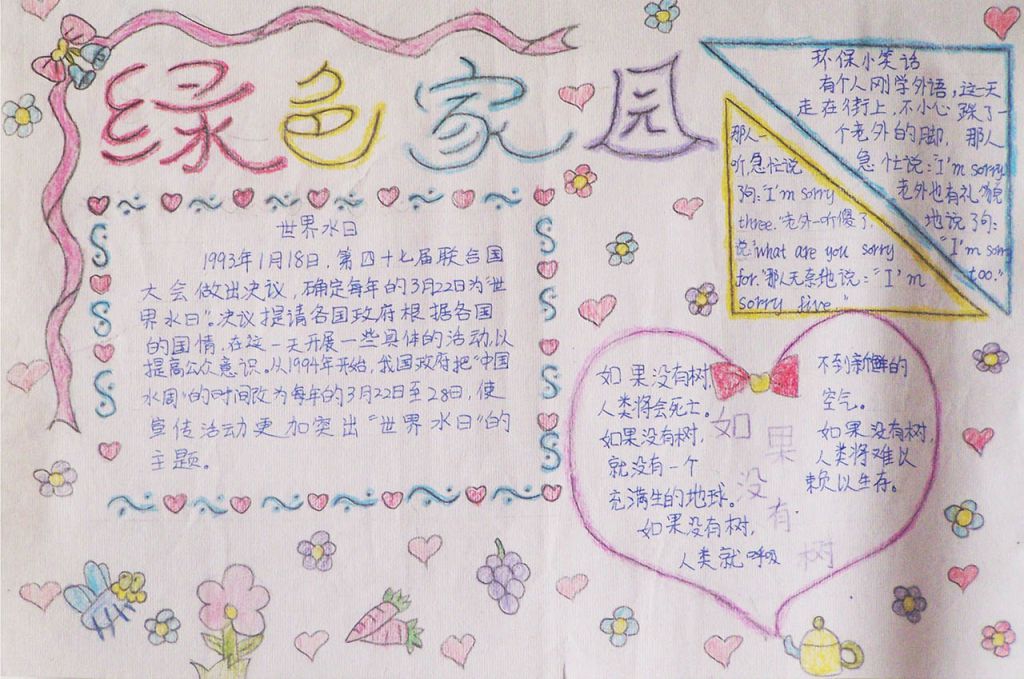 绿色家园
世界水日
1993年1月18日，第四十七届联合国
大会做出决议，确定每年的3月22日为“世
界水日”。决议提请各国政府根据各国
的国情，在这一天开展一些具体的活动，以
提高公众意识。从1994年开始，我国政府把“中国
水周”的时间改为每年的3月22日至28日，使
宣传活动更加突出“世界水日”的
主题。
环保小笑话
有个人刚学外语，这一天
走在街上，不小心踩了一
个老外的脚，那人
急忙说：“I'm sorry
老外也有礼貌
地说了句：
“I'm sorry
too.”
那人一
听急忙说
了句：“I'm sorry
three.”老外一听傻了，
说：“what are you sorry
for.”那人无奈地说：“I'm
sorry five.”
如果没有树
如果没有树，
人类将会死亡。
如果没有树，
就没有一个
充满生的地球。
如果没有树，
人类就呼吸
不到新鲜的
空气。
如果没有树，
人类将难以
赖以生存。